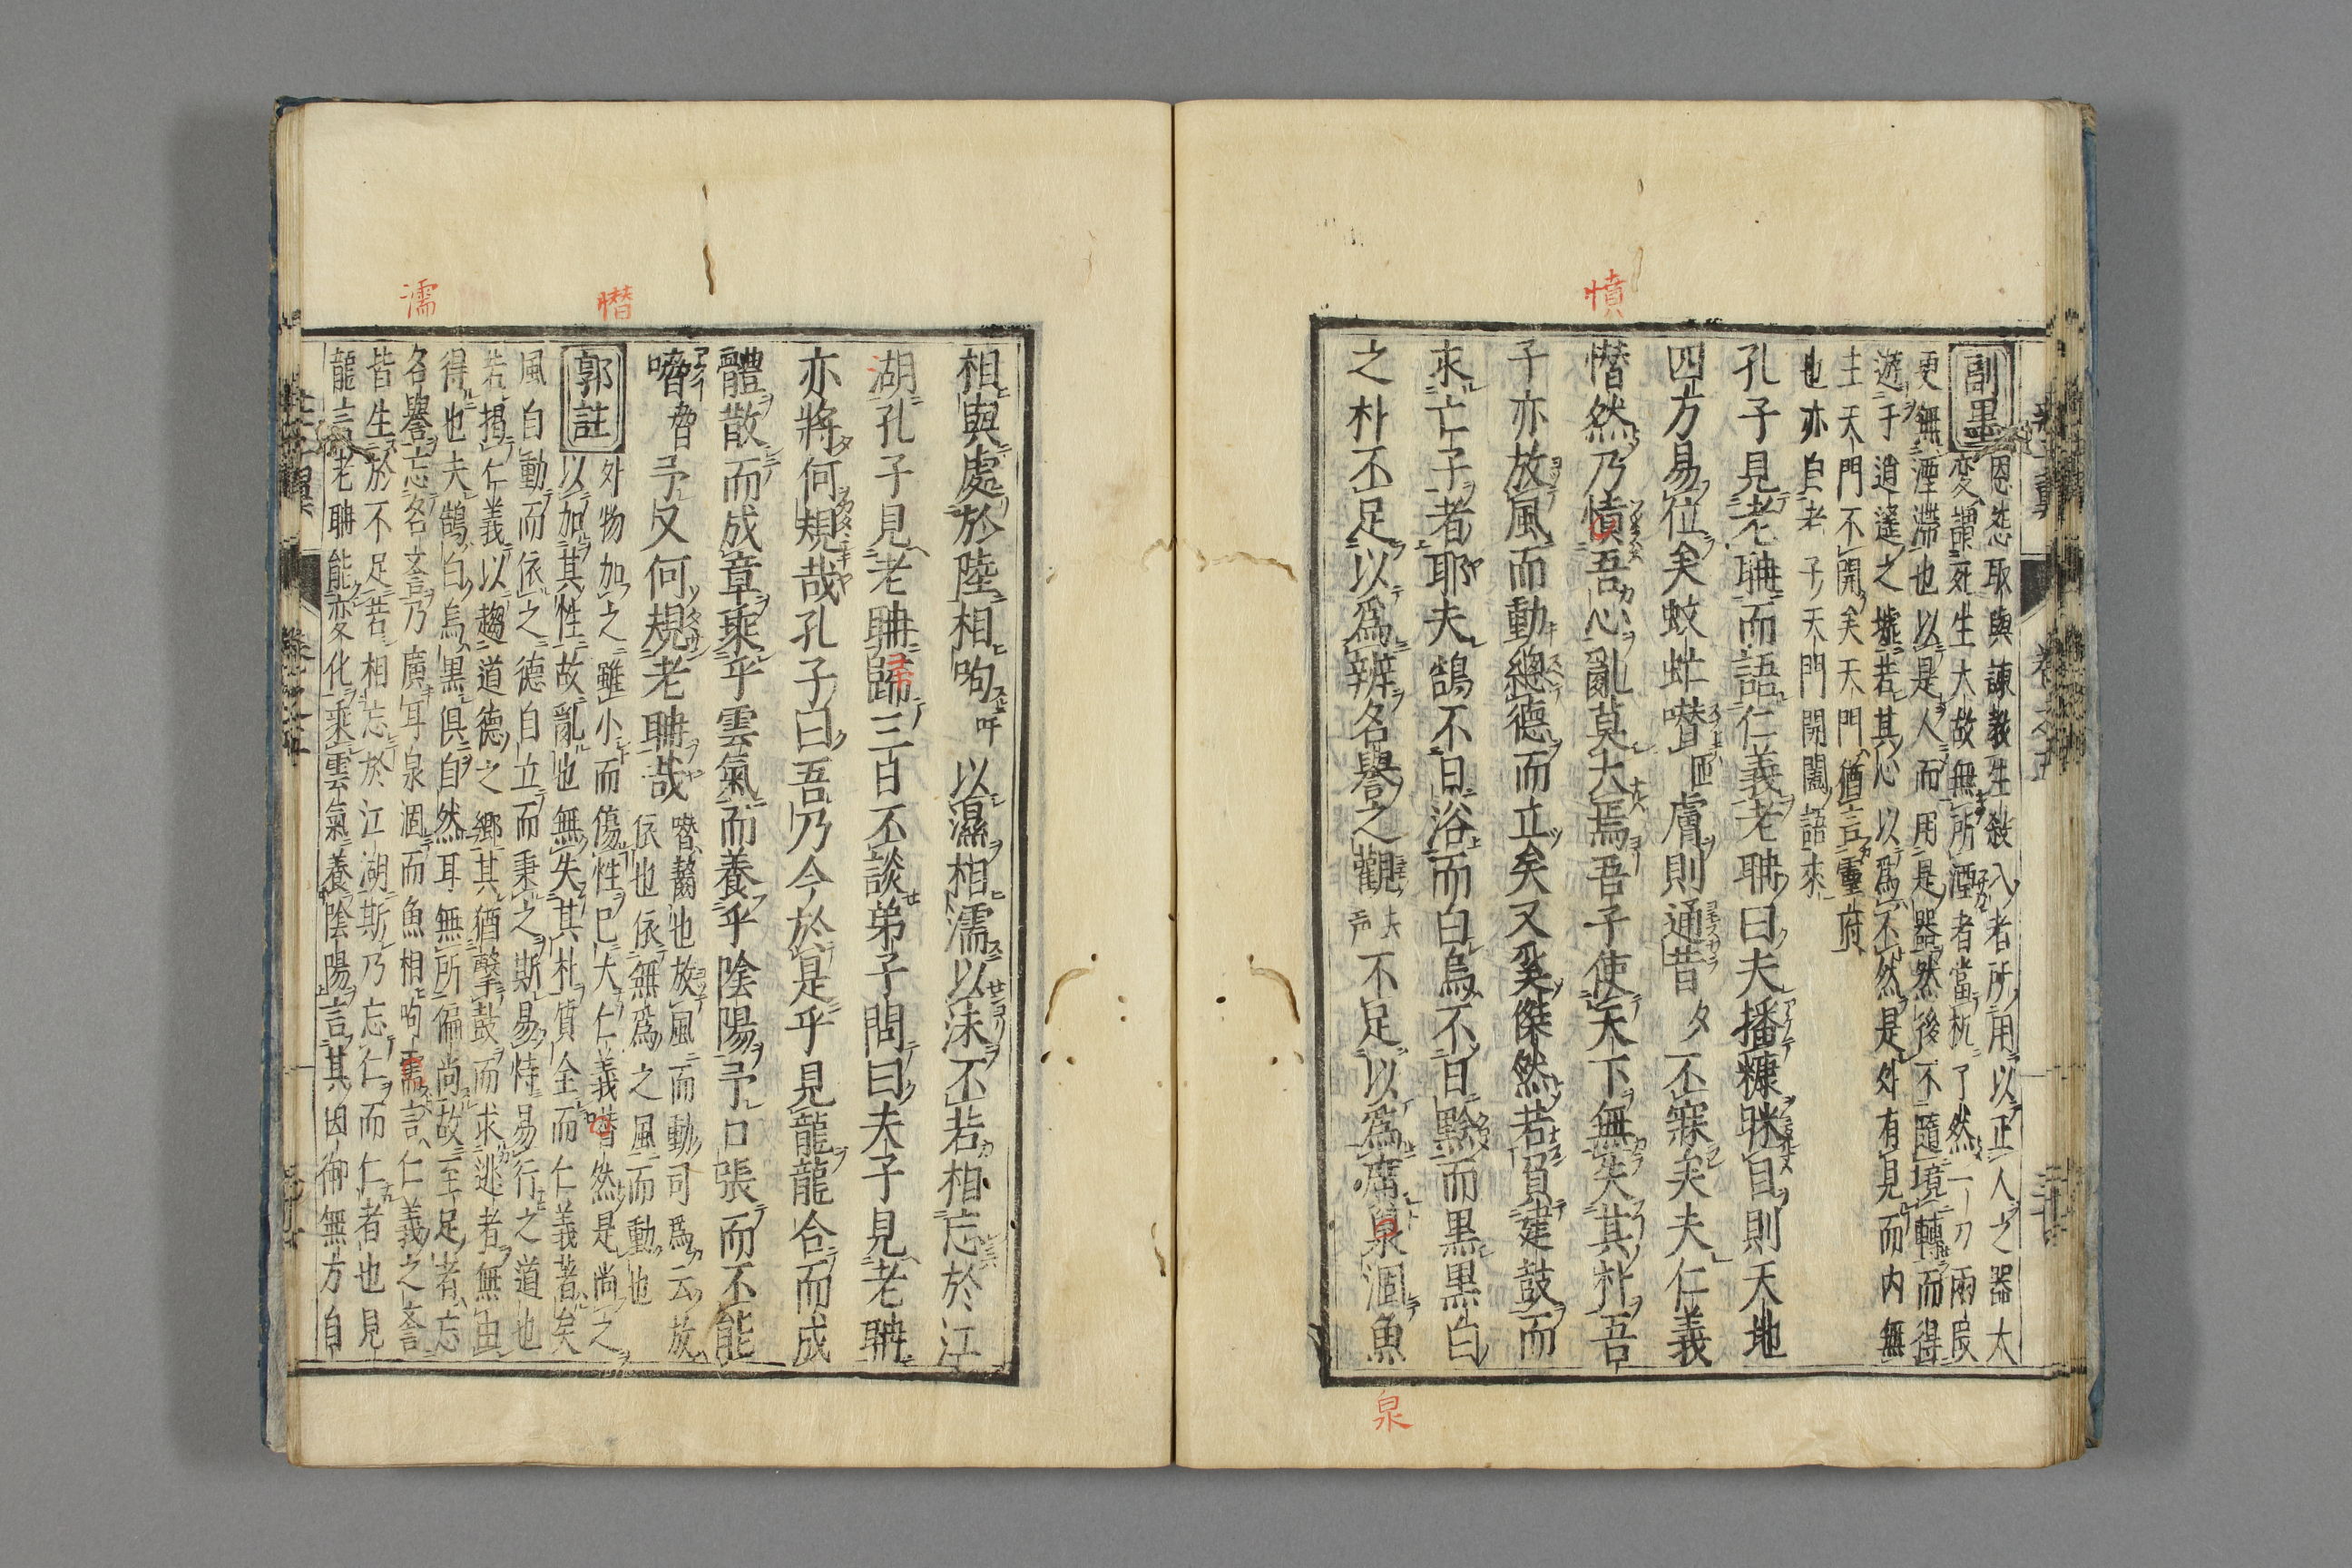 憤
副墨
恩怨取與諫敎生殺八者所用以正人之器大
変謂死生大故無所湮者當机了然一刀兩段
更無湮滯也以是人而用是器然後不隨境轉而得
遊于逍遙之墟若其心以爲不然是外有見而内無
主天門不開矣天門猶言靈府
也亦自老子天門開闔語來
孔子見老聃而語仁義老聃曰夫播糠眯目則天地
四方易位矣蚊虻噆匝膚則通昔夕不寐矣夫仁義
憯然乃憤吾心亂莫大焉吾子使天下無失其朴吾
子亦放風而動總德而立矣又奚傑然若負建鼓而
求亡子者耶夫鵠不日浴而白烏不日黔而黒黒白
之朴不足以爲辨名譽之觀去声不足以爲廣泉涸魚
泉
濡
憯
相與處於陸相呴吁以濕相濡以沫不若相忘於江
湖孔子見老聃歸三日不談弟子問曰夫子見老聃
亦將何規哉孔子曰吾乃今於是乎見龍龍合而成
體散而成章乘乎雲氣而養乎陰陽予口張而不能
嗋脅予又何規老聃哉
噆齧也放風而動司馬云放
依也依無爲之風而動也
郭註
外物加之雖小而傷性已大仁義憯然是尚之
以加其性故亂也無失其朴質全而仁義著矣
風自動而依之德自立而秉之斯易恃易行之道也
若揭仁義以趨道德之鄉其猶擊鼓而求逃者無由
得也夫鵠白烏黒俱自然耳無所偏尚故至足者忘
名譽忘名譽乃廣耳泉涸而魚相呴濡言仁義之譽
皆生於不足若相忘於江湖斯乃忘仁而仁者也見
龍言老聃能变化乘雲氣養陰陽言其因御無方自